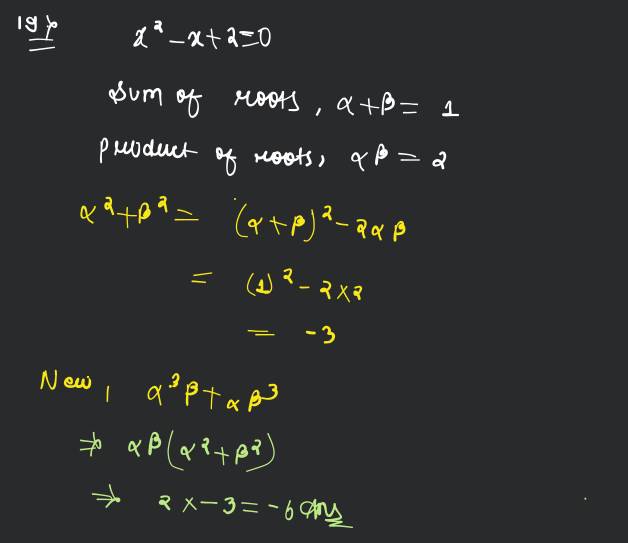 19)
x² - x + 2 = 0
Sum of roots, α + β = 1
product of roots, αβ = 2
α² + β² = (α + β)² - 2αβ
= (1)² - 2 × 2
= -3
Now, α³β + αβ³
⇒ αβ(α² + β²)
⇒ 2 × -3 = -6 Ans